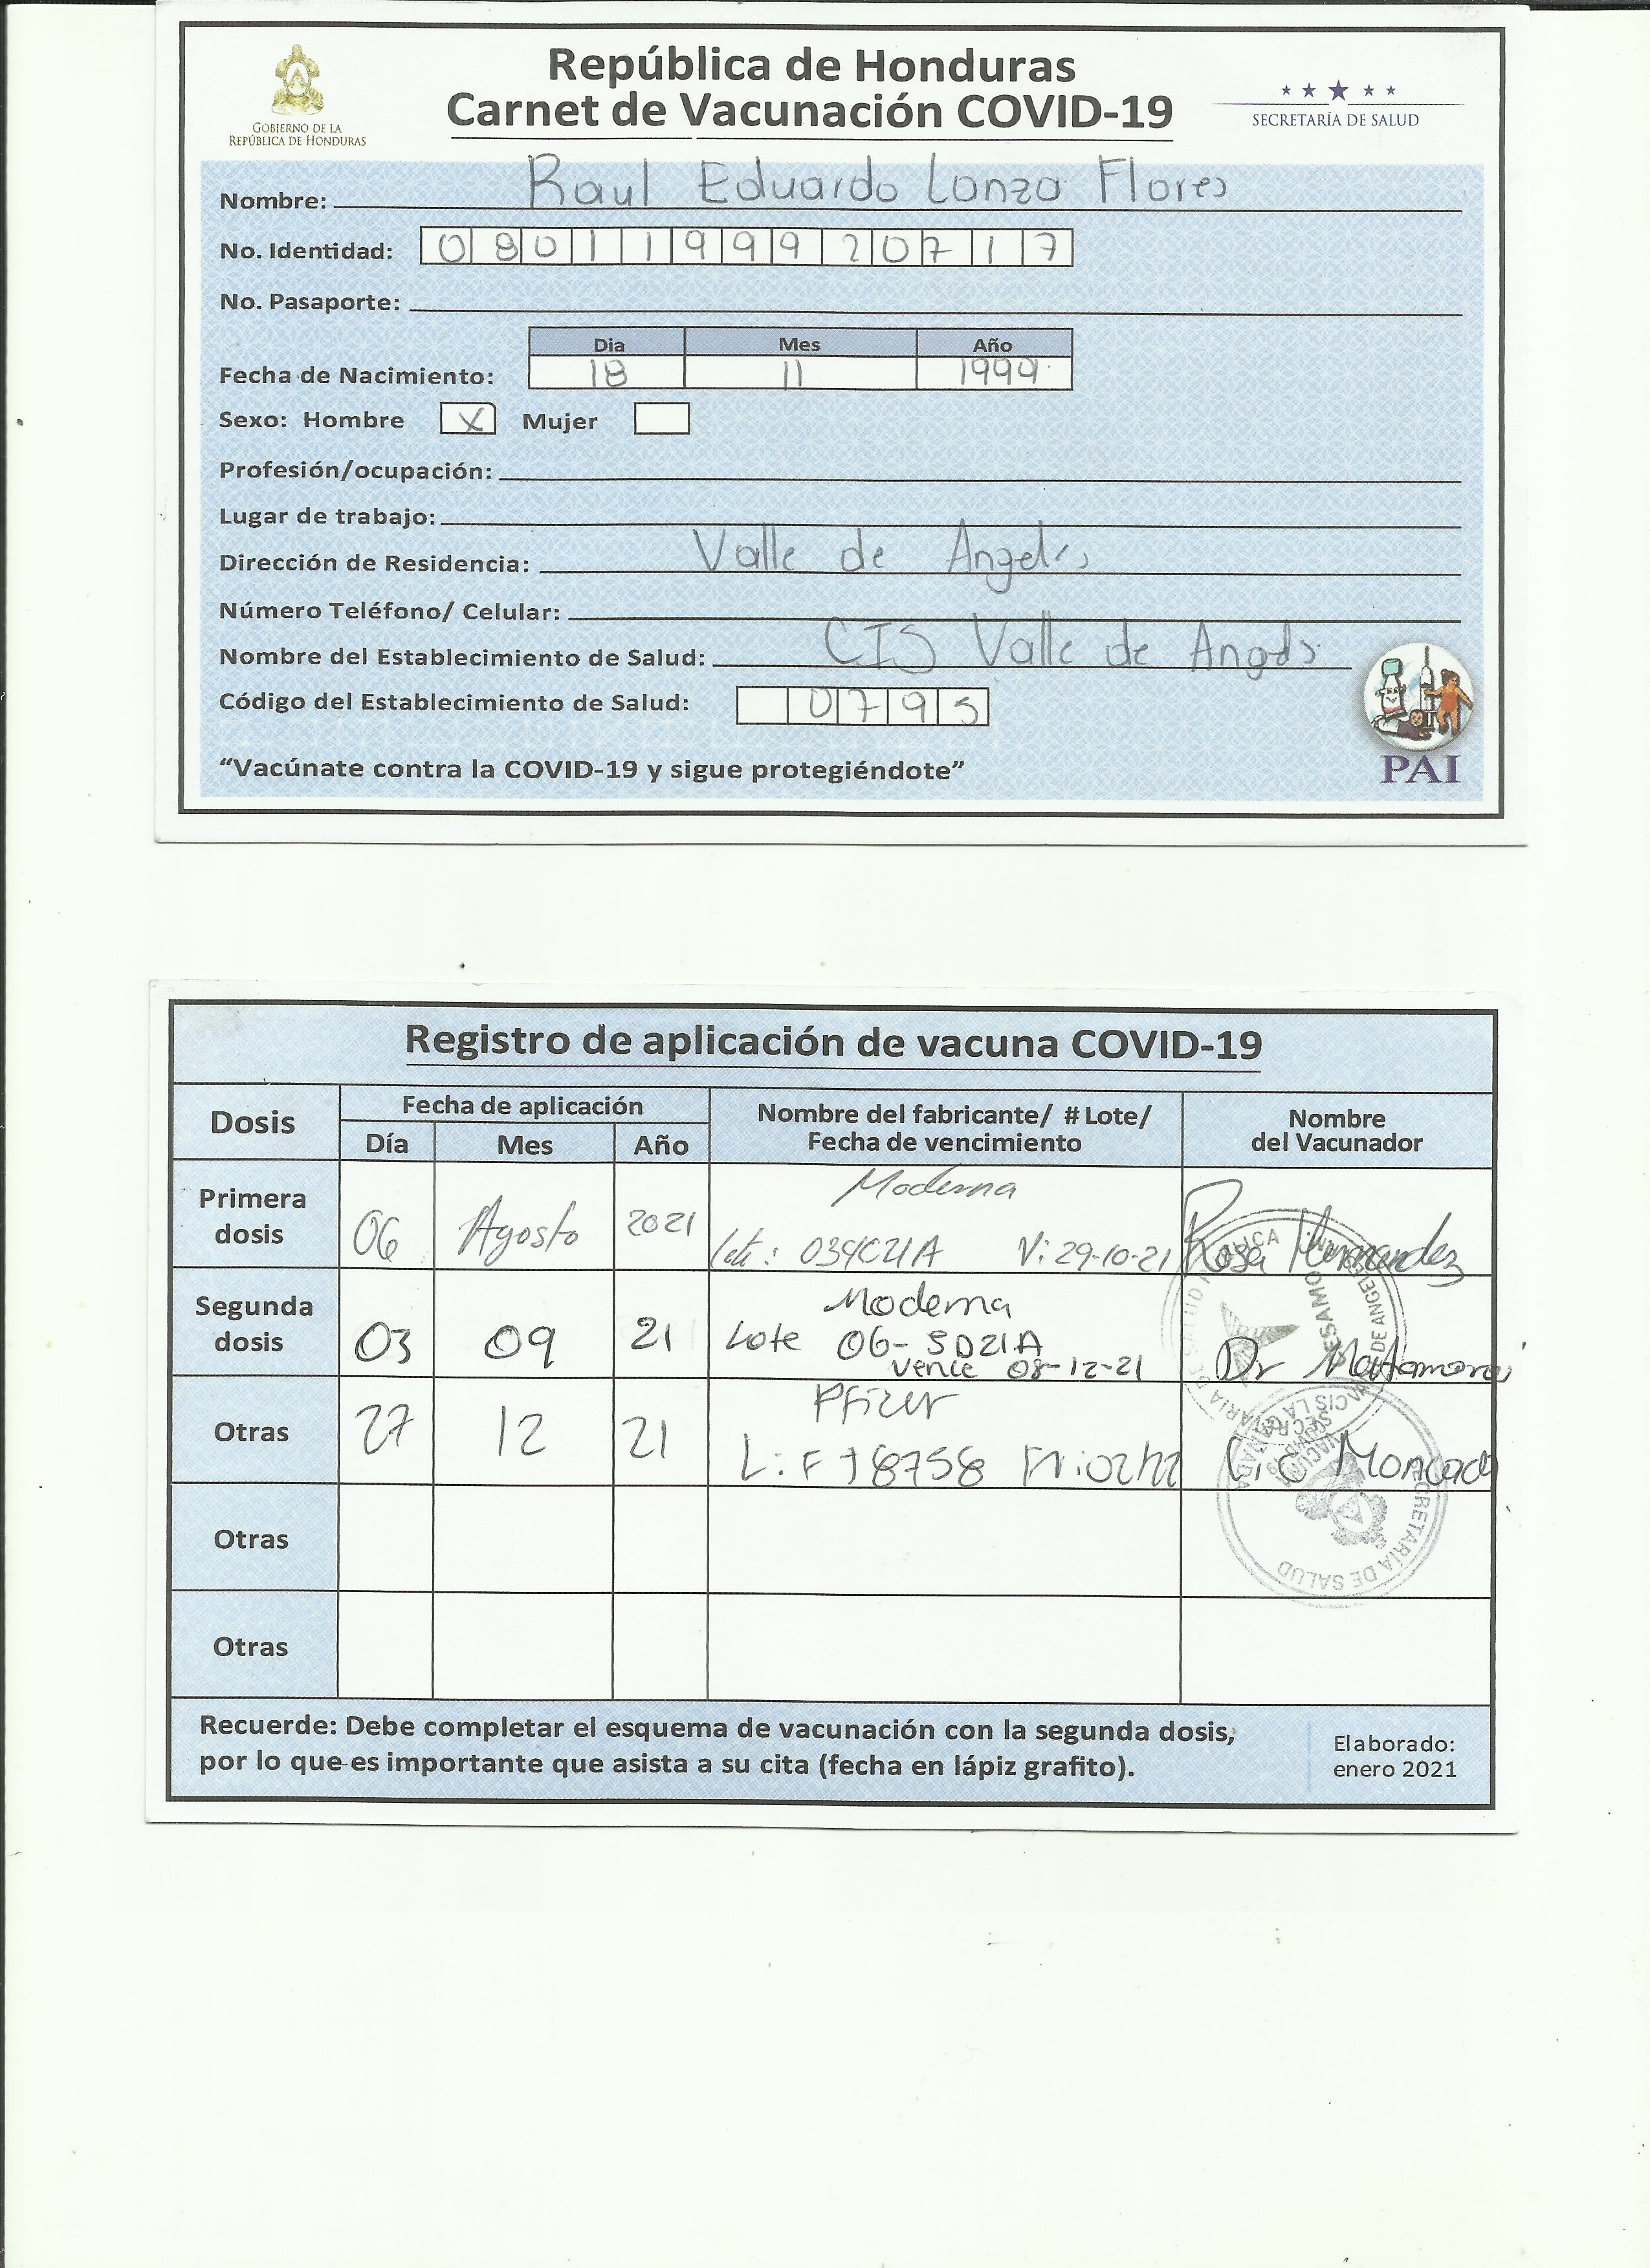 República de Honduras
Carnet de Vacunación COVID-19
GOBIERNO DE LA
REPÚBLICA DE HONDURAS
SECRETARÍA DE SALUD
Nombre: Raul Eduardo Lanza Flores
No. Identidad: 0801199920717
No. Pasaporte:
Dia Mes Año
Fecha de Nacimiento: 18 11 1999
Sexo: Hombre X Mujer
Profesión/ocupación:
Lugar de trabajo:
Dirección de Residencia: Valle de Angeles
Número Teléfono/ Celular:
Nombre del Establecimiento de Salud: CIS Valle de Angeles
Código del Establecimiento de Salud: 0795
“Vacúnate contra la COVID-19 y sigue protegiéndote”
PAI
Registro de aplicación de vacuna COVID-19
Dosis
Fecha de aplicación
Día Mes Año
Nombre del fabricante/ # Lote/
Fecha de vencimiento
Nombre
del Vacunador
Primera
dosis
06 Agosto 2021
Moderna
Lote: 034C21A V: 29-10-21
Rosa Hernandez
Segunda
dosis
03 09 21
Moderna
Lote 06-5D21A
Vence 08-12-21
Dr Matamoros
Otras
27 12 21
Pfizer
L: FJ8758
Moncada
SECRETARÍA DE SALUD
Otras
Otras
Recuerde: Debe completar el esquema de vacunación con la segunda dosis,
por lo que es importante que asista a su cita (fecha en lápiz grafito).
Elaborado:
enero 2021